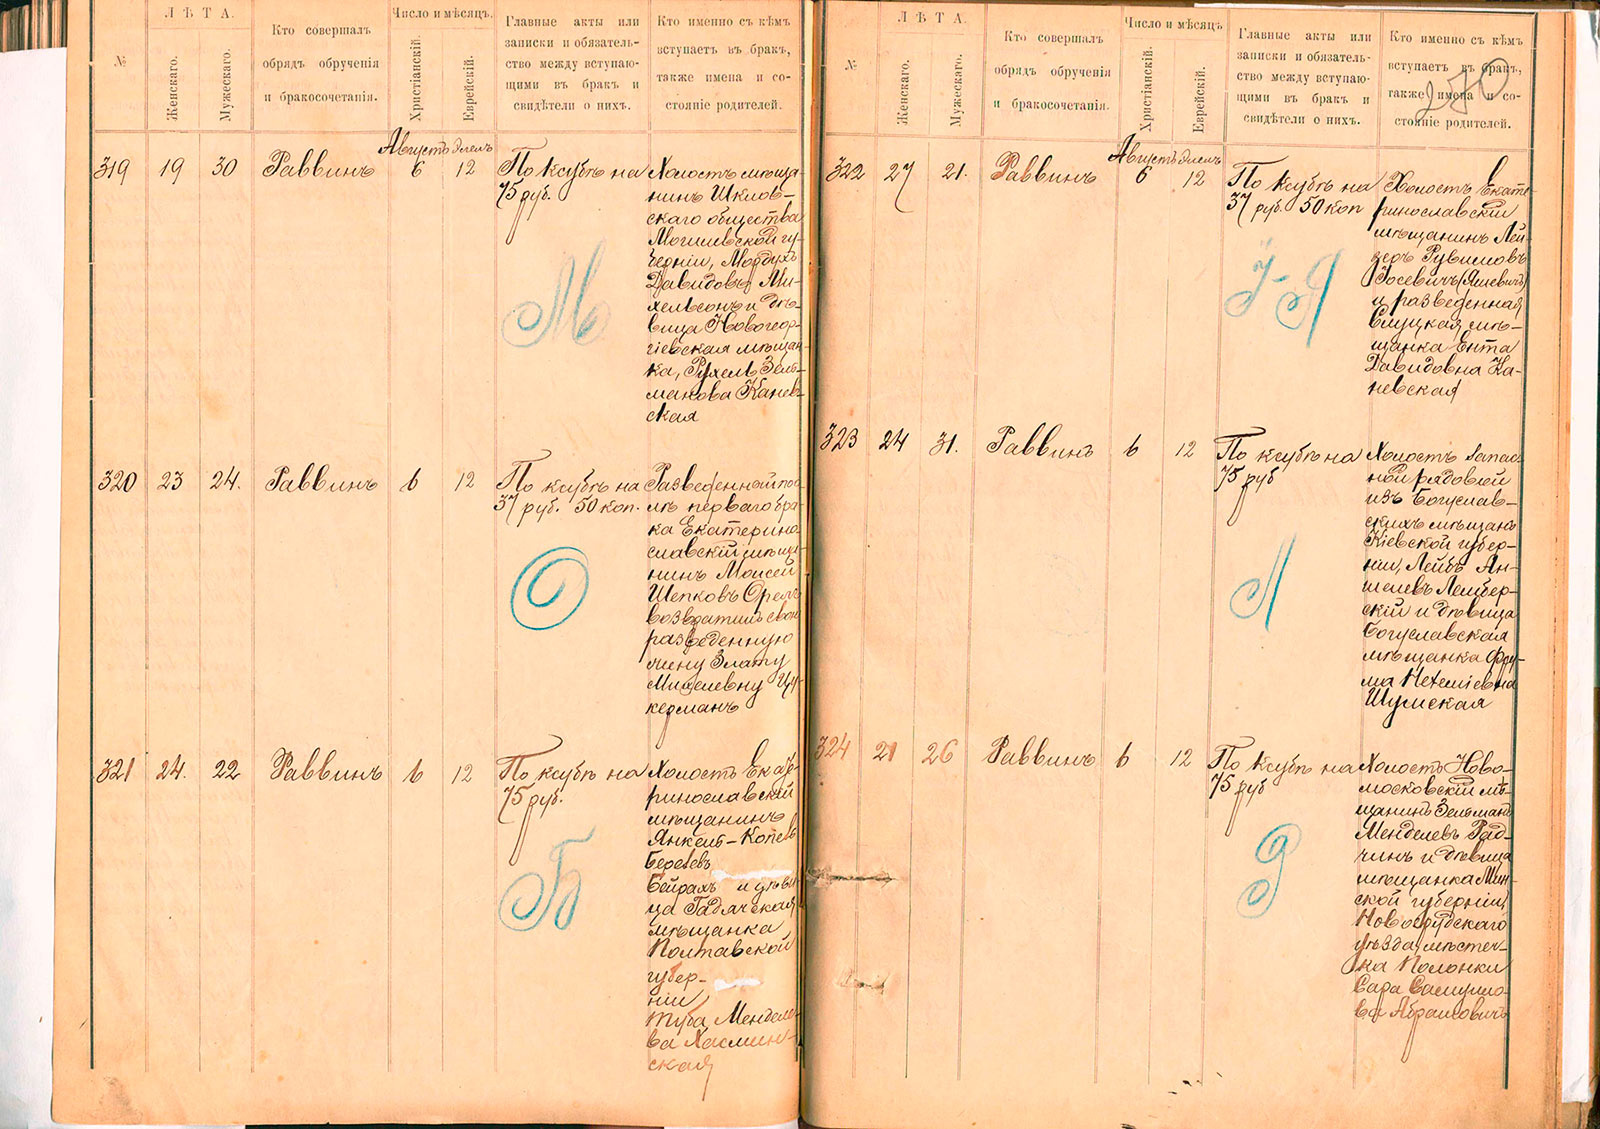 №
ЛѢТА.
Женскаго.
Мужескаго.
Кто совершалъ
обрядъ обрученія
и бракосочетанія.
Число и мѣсяцъ.
Христіанскій.
Еврейскій.
Главные акты или
записки и обязатель-
ство между вступаю-
щими въ бракъ и
свидѣтели о нихъ.
Кто именно съ кѣмъ
вступаетъ въ бракъ,
также имена и со-
стояніе родителей.
319
19
30
Раввинъ
Августъ
6
Элелъ
12
По ксубѣ на
75 руб.
М
Холостъ мѣща-
нинъ Шклов-
скаго общества
Могилевской гу-
берніи, Мордухъ
Давидовъ Ми-
хельсонъ и дѣ-
вица Новогеор-
гіевская мѣщан-
ка, Рухель Зель-
манова Канев-
ская
320
23
24.
Раввинъ
6
12
По ксубѣ на
37 руб. 50 коп.
О
Разведенный пос-
лѣ перваго бра-
ка Екатерино-
славскій мѣща-
нинъ Моисей
Шепковъ Орелъ
возвратилъ свою
разведенную
жену Злату
Михелевну Цу-
керманъ
321
24.
22
Раввинъ
6
12
По ксубѣ на
75 руб.
Б
Холостъ Екате-
ринославскій
мѣщанинъ
Янкель-Копель
Береловъ
Бейрахъ и дѣви-
ца Гадячская
мѣщанка
Полтавской
губер-
ніи
Туба Менделе-
ва Хасмин-
ская
№
ЛѢТА.
Женскаго.
Мужескаго.
Кто совершалъ
обрядъ обрученія
и бракосочетанія.
Число и мѣсяцъ
Христіанскій.
Еврейскій.
Главные акты или
записки и обязатель-
ство между вступаю-
щими въ бракъ и
свидѣтели о нихъ.
Кто именно съ кѣмъ
вступаетъ въ бракъ,
также имена и со-
стояніе родителей.
270
322
27
21.
Раввинъ
Августъ
6
Элелъ
12
По ксубѣ на
37 руб. 50 коп
І-Я
Холостъ Екате-
ринославскій
мѣщанинъ Лей-
зеръ Рувимовъ
Іосевичъ (Яшевичъ)
и разведенная
Слуцкая мѣ-
щанка Ента
Давидовна Ка-
невская
323
24
31.
Раввинъ
6
12
По ксубѣ на
75 руб
Л
Холостъ запас-
ной рядовой
изъ Богуслав-
скихъ мѣщанъ
Кіевской губер-
ніи, Лейбъ Ян-
шелевъ Лембер-
скій и дѣвица
Богуславская
мѣщанка Фру-
ма Нехеміевна
Шумская
324
21
26
Раввинъ
6
12
По ксубѣ на
75 руб
Р
Холостъ Ново-
московскій мѣ-
щанинъ Зельманъ
Менделевъ Рад-
чинъ и дѣвица
мѣщанка Мин-
ской губерніи,
Новогрудскаго
уѣзда, мѣстеч-
ка Полонки
Сара Самуило-
ва Абрамовичъ